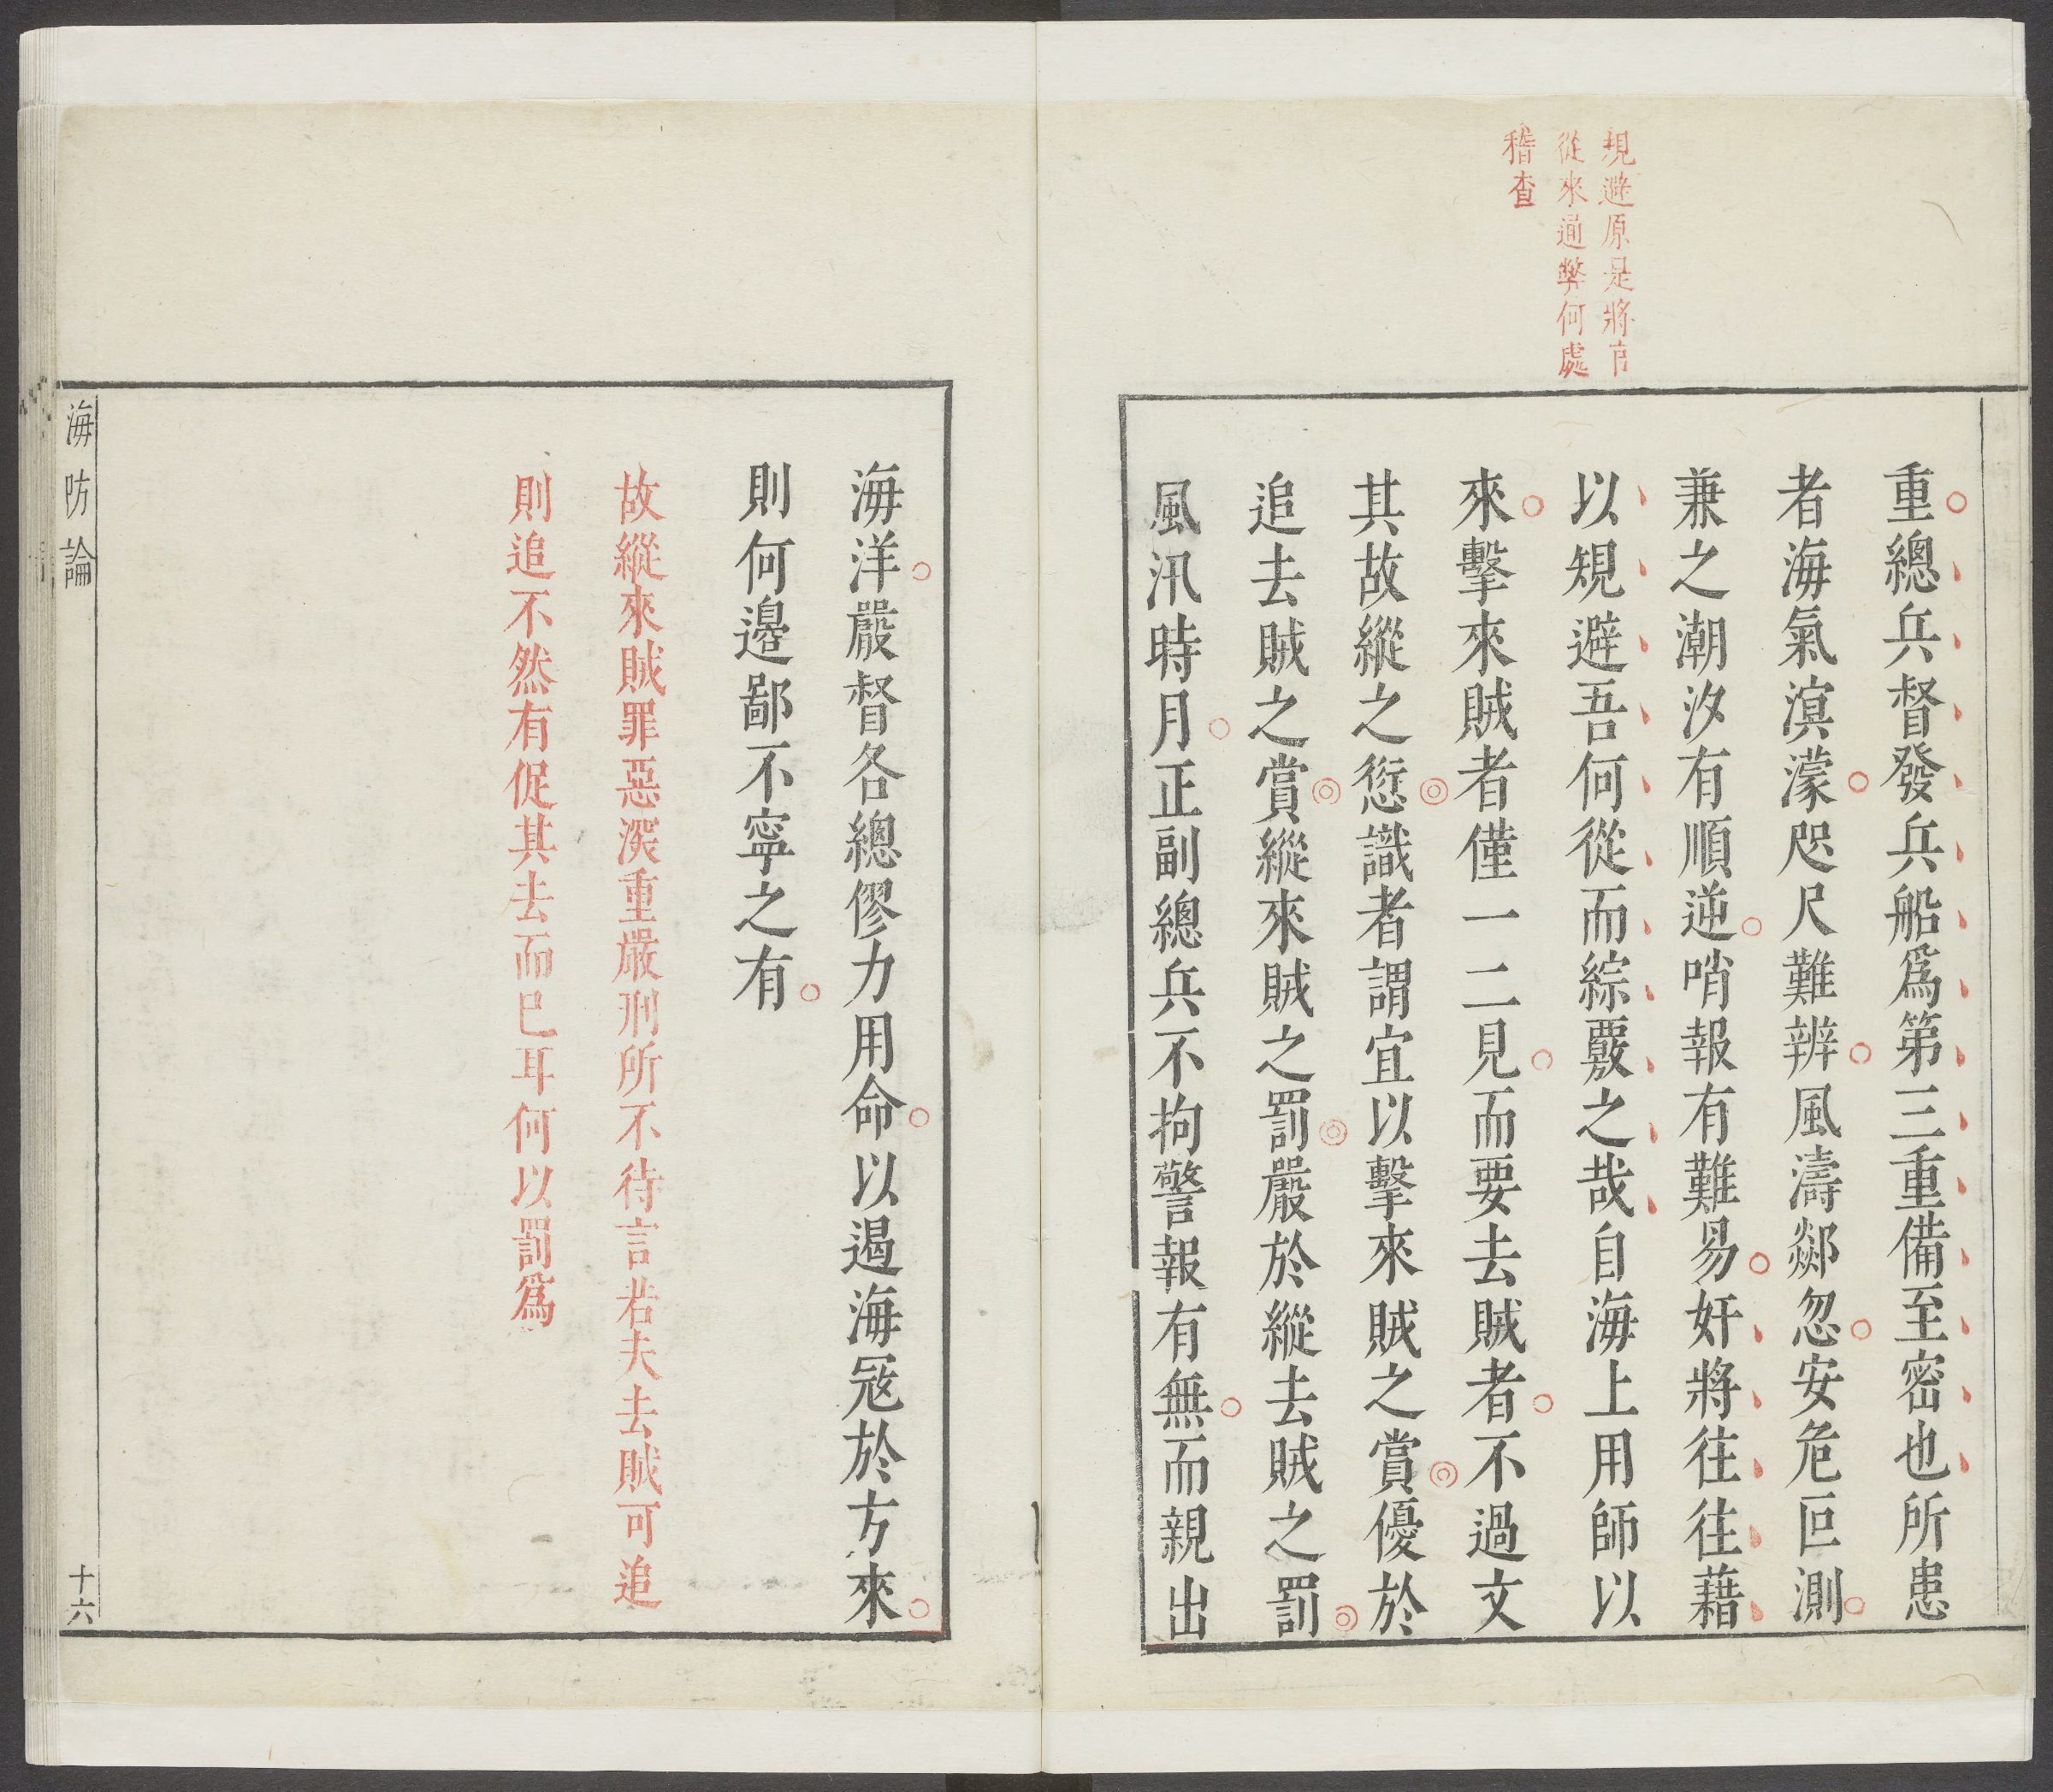 規避原是將官
從來通弊何處
稽查
重總兵督發兵船爲第三重備至密也所患
者海氣溟濛咫尺難辨風濤歘忽安危叵測
兼之潮汐有順逆哨報有難易奸將往往藉
以規避吾何從而綜覈之哉自海上用師以
來擊來賊者僅一二見而要去賊者不過文
其故縱之愆識者謂宜以擊來賊之賞優於
追去賊之賞縱來賊之罰嚴於縱去賊之罰
風汛時月正副總兵不拘警報有無而親出
海洋嚴督各總僇力用命以遏海寇於方來
則何邊鄙不寧之有
故縱來賊罪惡深重嚴刑所不待言若夫去賊可追
則追不然有促其去而已耳何以罰爲
海防論
十六